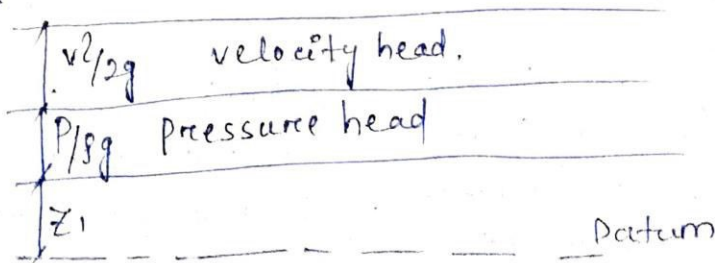 v²/2g velocity head.
P/ρg Pressure head
Z₁
Datum